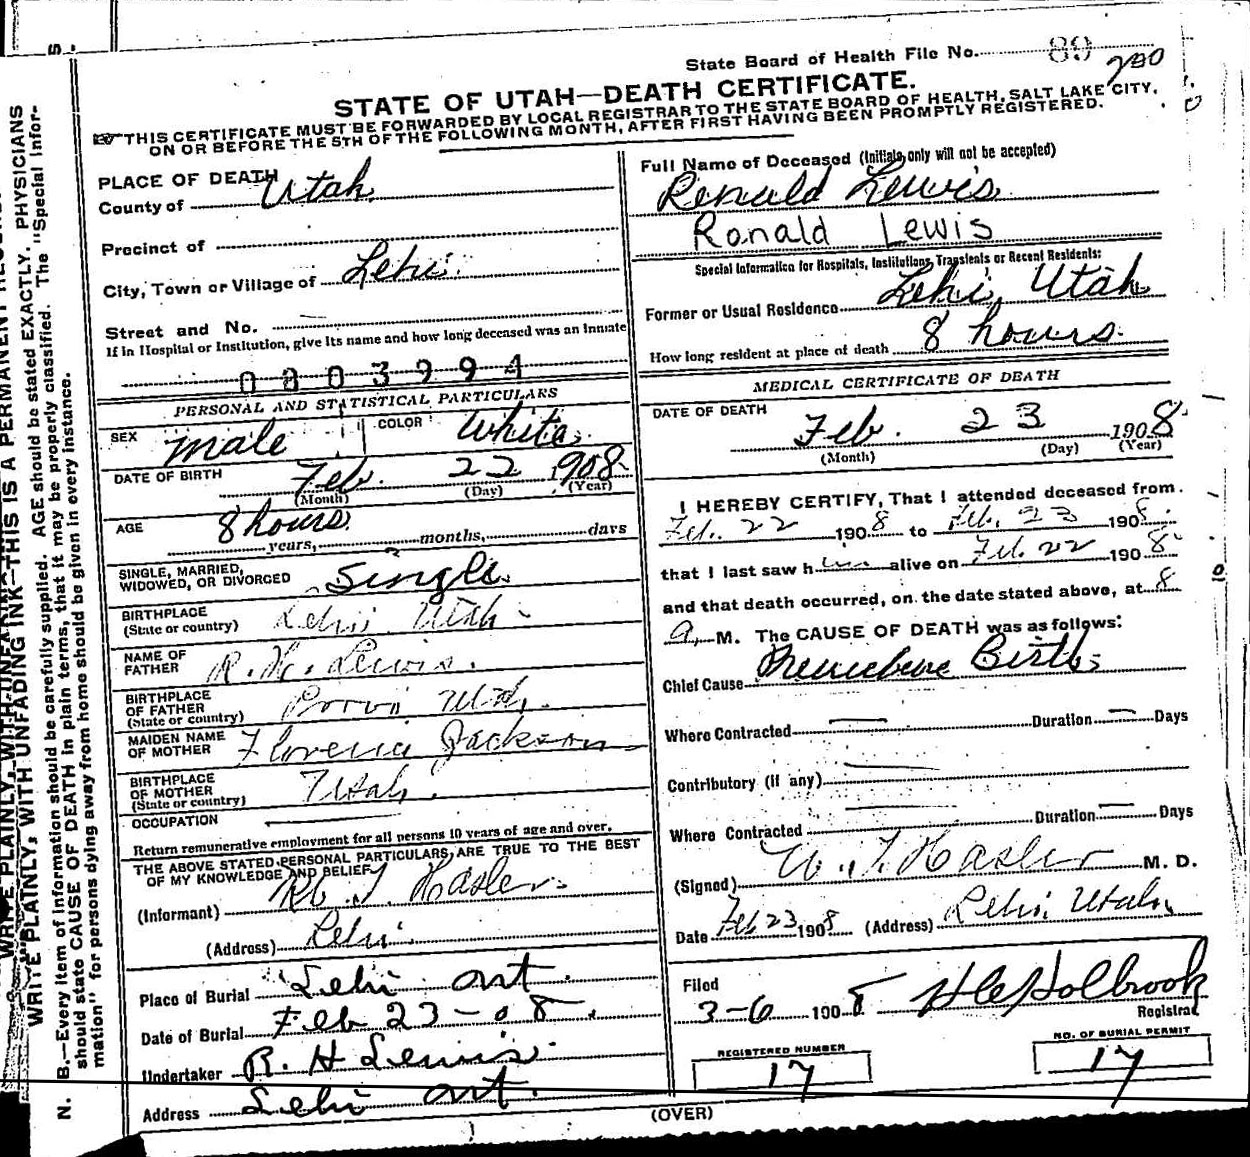 State Board of Health File No. 89
200
STATE OF UTAH—DEATH CERTIFICATE.
THIS CERTIFICATE MUST BE FORWARDED BY LOCAL REGISTRAR TO THE STATE BOARD OF HEALTH, SALT LAKE CITY,
ON OR BEFORE THE 5TH OF THE FOLLOWING MONTH, AFTER FIRST HAVING BEEN PROMPTLY REGISTERED.
PLACE OF DEATH
County of Utah
Precinct of
City, Town or Village of Lehi.
Street and No. —
If in Hospital or Institution, give its name and how long deceased was an Inmate
0803994
PERSONAL AND STATISTICAL PARTICULARS
SEX male COLOR White
DATE OF BIRTH Feb. 22 1908
(Month) (Day) (Year)
AGE 8 hours
years, months, days
SINGLE, MARRIED,
WIDOWED, OR DIVORCED Single
BIRTHPLACE
(State or country) Lehi Utah
NAME OF
FATHER R. H. Lewis.
BIRTHPLACE
OF FATHER
(State or country) Provo Utah.
MAIDEN NAME
OF MOTHER Florence Jackson
BIRTHPLACE
OF MOTHER
(State or country) Utah.
OCCUPATION
Return remunerative employment for all persons 10 years of age and over.
THE ABOVE STATED PERSONAL PARTICULARS ARE TRUE TO THE BEST
OF MY KNOWLEDGE AND BELIEF
(Informant) Hasler
(Address) Lehi.
Place of Burial Lehi
Date of Burial Feb 23-08.
Undertaker R. H Lewis
Address Lehi
Full Name of Deceased (Initials only will not be accepted)
Renald Lewis
Ronald Lewis
Special Information for Hospitals, Institutions, Transients or Recent Residents:
Former or Usual Residence Lehi, Utah
How long resident at place of death 8 hours.
MEDICAL CERTIFICATE OF DEATH
DATE OF DEATH Feb. 23 1908
(Month) (Day) (Year)
I HEREBY CERTIFY, That I attended deceased from
Feb. 22 1908 to Feb. 23 1908.
that I last saw him alive on Feb. 22 1908
and that death occurred, on the date stated above, at 8
a. M. The CAUSE OF DEATH was as follows:
Chief Cause Premature Birth
Where Contracted — Duration — Days
Contributory (if any)
Where Contracted Duration — Days
(Signed) Hasler M. D.
Date Feb 23 1908 (Address) Lehi Utah.
Filed
3-6 1908 Holbrook
Registrar
REGISTERED NUMBER
17
NO. OF BURIAL PERMIT
17
(OVER)
WRITE PLAINLY, WITH UNFADING INK—THIS IS A PERMANENT
N. B.—Every item of information should be carefully supplied. AGE should be stated EXACTLY. PHYSICIANS
should state CAUSE OF DEATH in plain terms, that it may be properly classified. The "Special Infor-
mation" for persons dying away from home should be given in every instance.